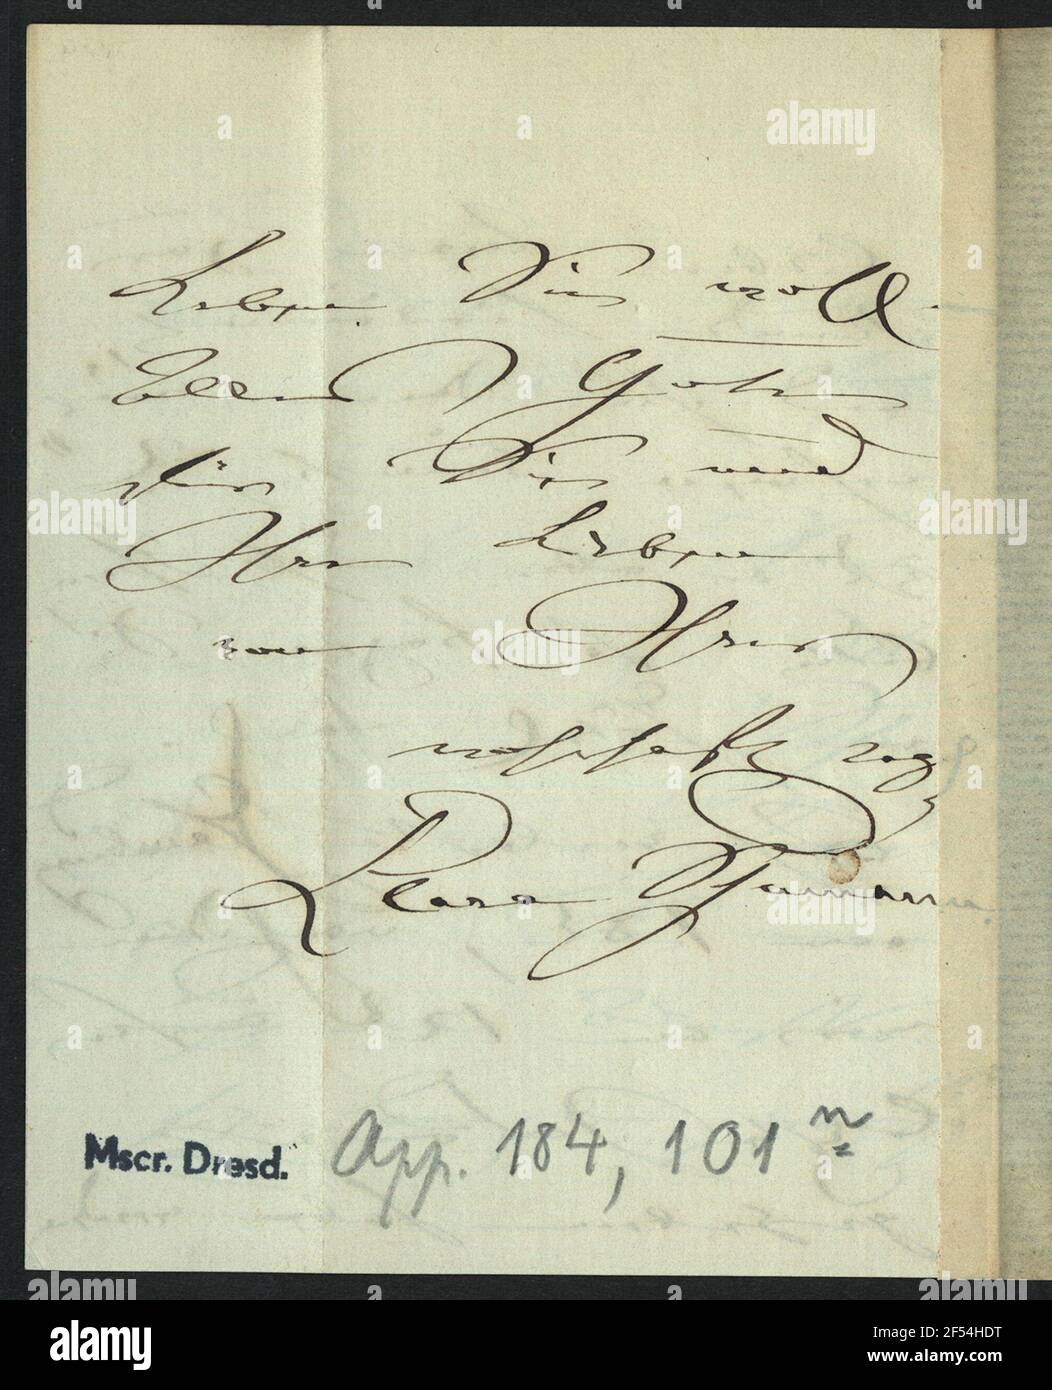 Leben Sie wohl.
Alles Gute
für Sie und
Ihre Lieben
von Ihrer
hochachtungs
Clara Schumann.
Mscr. Dresd. App. 184, 101 n
alamy
alamy
alamy
alamy
alamy
alamy
Image ID: 2F54HDT
www.alamy.com